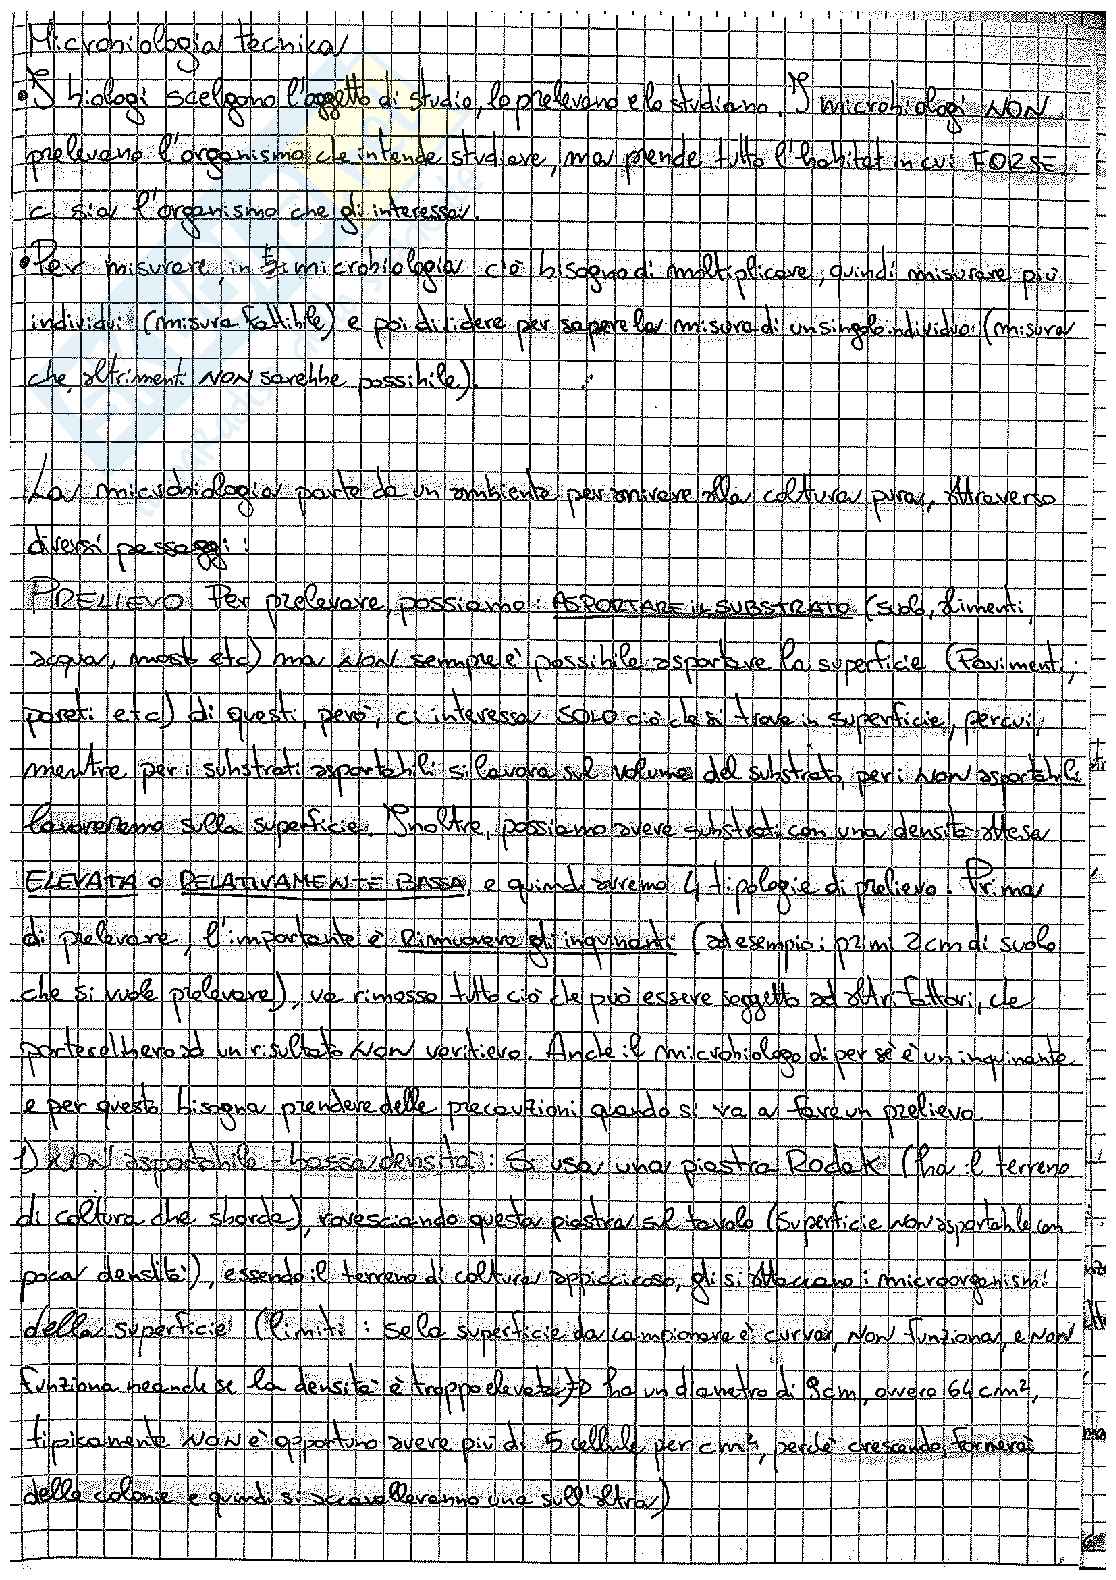 Microbiologia tecnica
• I biologi scelgono l'oggetto di studio, lo prelevano e lo studiano. I microbiologi NON
prelevano l'organismo che intende studiare, ma prende tutto l'habitat in cui FORSE
ci sia l'organismo che gli interessa.
• Per misurare, in microbiologia c'è bisogno di moltiplicare, quindi misurare più
individui (misura fattibile) e poi dividere per sapere la misura di un singolo individuo (misura
che, altrimenti NON sarebbe possibile).
La microbiologia parte da un ambiente per arrivare alla coltura pura, attraverso
diversi passaggi:
PRELIEVO Per prelevare, possiamo: ASPORTARE IL SUBSTRATO (suolo, alimenti,
acqua, mosto etc) ma NON sempre è possibile asportare la superficie (Pavimenti,
pareti etc) di questi, però, ci interessa SOLO ciò che si trova in superficie, per cui,
mentre per i substrati asportabili si lavora sul volume del substrato, per i NON asportabili
lavoreremo sulla superficie. Inoltre, possiamo avere substrati con una densità attesa
ELEVATA o RELATIVAMENTE BASSA, e quindi avremo 4 tipologie di prelievo. Prima
di prelevare, l'importante è rimuovere gli inquinanti (ad esempio i primi 2 cm di suolo
che si vuole prelevare), va rimosso tutto ciò che può essere soggetto ad altri fattori, che
porterebbero ad un risultato NON veritiero. Anche il microbiologo di per sè è un inquinante
e per questo bisogna prendere delle precauzioni quando si va a fare un prelievo.
1) NON asportabile - bassa densità: Si usa una piastra Rodak (ha il terreno
di coltura che sborda), rovesciando questa piastra sul tavolo (superficie non asportabile con
poca densità), essendo il terreno di coltura appiccicoso, gli si attaccano i microorganismi
della superficie (limiti: se la superficie da campionare è curva, NON funziona, e NON
funziona neanche se la densità è troppo elevata → ha un diametro di 9cm, ovvero 64 cm²,
tipicamente NON è opportuno avere più di 5 cellule per cm², perchè crescendo, formerai
delle colonie e quindi si accavalleranno una sull'altra)